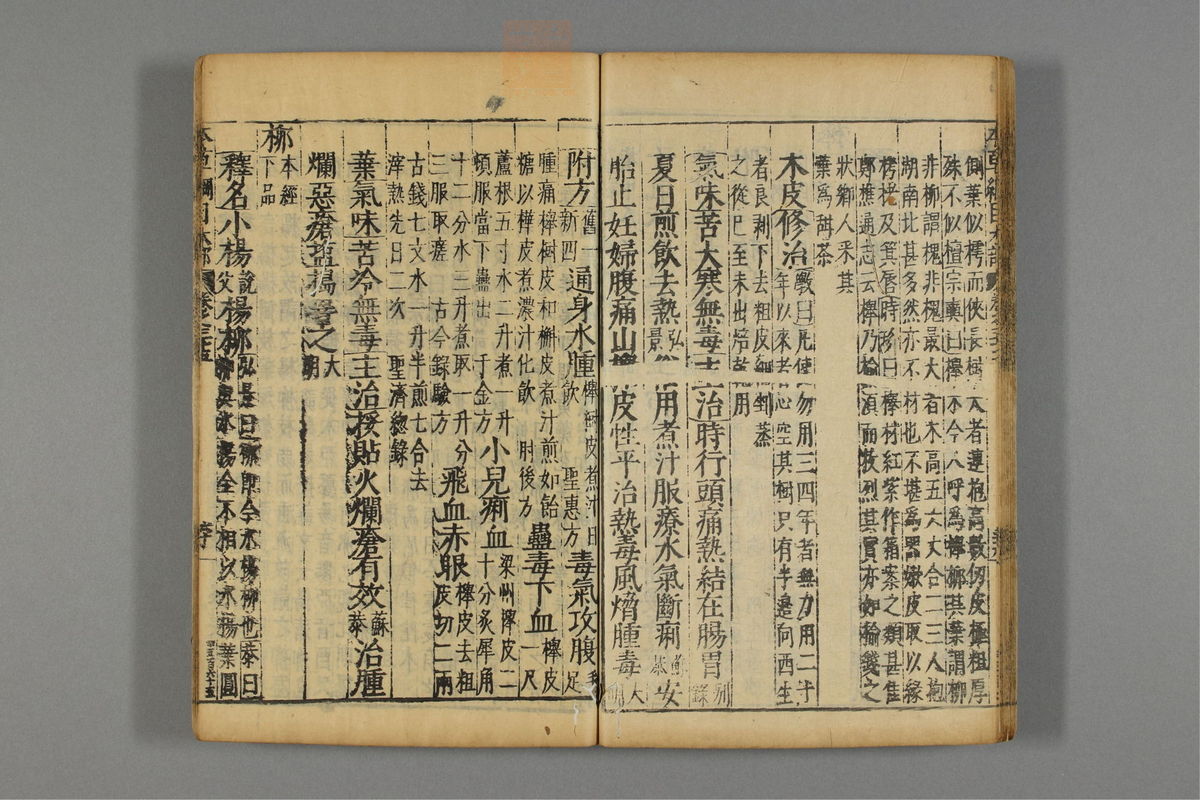 側葉似樗而狹長樹大者連抱高數仞皮極粗厚
殊不似檀宗奭曰欅木今人呼為欅柳其葉謂柳
非柳謂槐非槐最大者木高五六丈合二三人抱
湖南北甚多然亦不材也不堪為器嫩皮取以緣
栲栳及箕唇時珍曰欅材紅紫作箱案之類甚佳
鄭樵通志云欅乃榆類而枚烈其實亦如榆錢之
狀鄉人采其
葉為甜茶
木皮修治斅曰凡使勿用三四年者無力用二十
年以來者心空其樹只有半邊向西生
者良剝下去粗皮細剉蒸
之從巳至未出焙乾用
氣味苦大寒無毒主治時行頭痛熱結在腸胃別錄
夏日煎飲去熱弘景 用煮汁服療水氣斷痢 安
胎止妊婦腹痛山欅皮性平治熱毒風熁腫毒大明
附方舊一新四通身水腫欅樹皮煮汁日飲 聖惠方毒氣攻腹手足
腫痛欅樹皮和槲皮煮汁煎如飴
糖以樺皮煮濃汁化飲 肘後方蠱毒下血欅皮一尺
蘆根五寸水二升煮一升
頓服當下蠱出 千金方小兒痢血梁州欅皮二十分炙犀角
十二分水三升煮取一升分
三服取瘥 古今錄驗方飛血赤眼欅皮去粗皮切二兩
古錢七文水一升半煎七合去
滓熱洗日二次 聖濟總錄
葉氣味苦冷無毒主治挼貼火爛瘡有效蘇恭治腫
爛惡瘡鹽搗罯之大明
柳本經下品
釋名小楊說文楊柳弘景曰柳即今水楊柳也恭曰
柳與水楊全不相似水楊葉圓